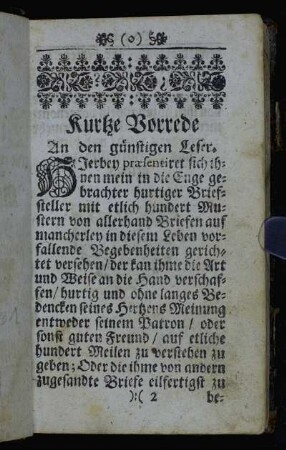 (o)
Kurtze Vorrede
An den günstigen Leser.
HJerbey præsentiret sich ih-
nen mein in die Enge ge-
brachter hurtiger Brief-
steller mit etlich hundert Mu-
stern von allerhand Briefen auf
mancherley in diesem Leben vor-
fallende Begebenheiten gerich-
tet versehen/der kan ihme die Art
und Weise an die Hand verschaf-
fen/hurtig und ohne langes Be-
dencken seines Hertzens Meinung
entweder seinem Patron/ oder
sonst guten Freund/ auf etliche
hundert Meilen zu verstehen zu
geben; Oder die ihme von andern
zugesandte Briefe eilfertigst zu
):( 2 be-